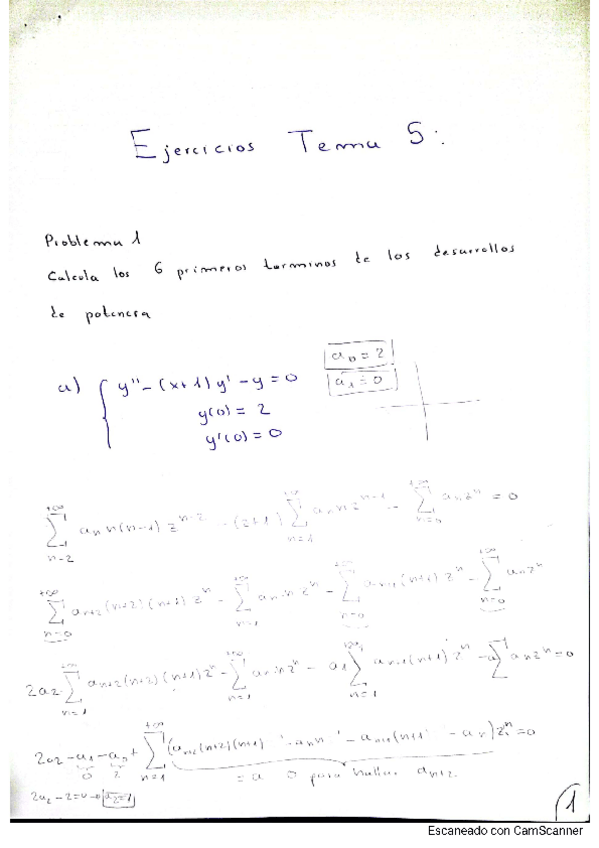 Ejercicios Tema 5:
Problema 1
Calcula los 6 primeros terminos de los desarrollos
de potencia
a) { y'' - (x+1) y' - y = 0
y(0) = 2
y'(0) = 0
a₀ = 2
a₁ = 0
+∞ ∑ n=2 aₙ n(n-1) zⁿ⁻² - (z+1) +∞ ∑ n=1 aₙ n zⁿ⁻¹ - +∞ ∑ n=0 aₙ zⁿ = 0
+∞ ∑ n=0 aₙ₊₂ (n+2)(n+1) zⁿ - +∞ ∑ n=1 aₙ n zⁿ - +∞ ∑ n=0 aₙ₊₁ (n+1) zⁿ - +∞ ∑ n=0 aₙ zⁿ
2a₂ +∞ ∑ n=1 aₙ₊₂ (n+2)(n+1) zⁿ - +∞ ∑ n=1 aₙ n zⁿ - a₁ +∞ ∑ n=1 aₙ₊₁ (n+1) zⁿ ∑ aₙ zⁿ = 0
2a₂ - a₁ - a₀ + +∞ ∑ n=1 (aₙ₊₂ (n+2)(n+1) - aₙ n - aₙ₊₁ (n+1) - aₙ) zⁿ = 0
0 2 = a 0 para hallar aₙ₊₂.
2a₂ - 2 = 0 → a₂ = 1
1
Escaneado con CamScanner